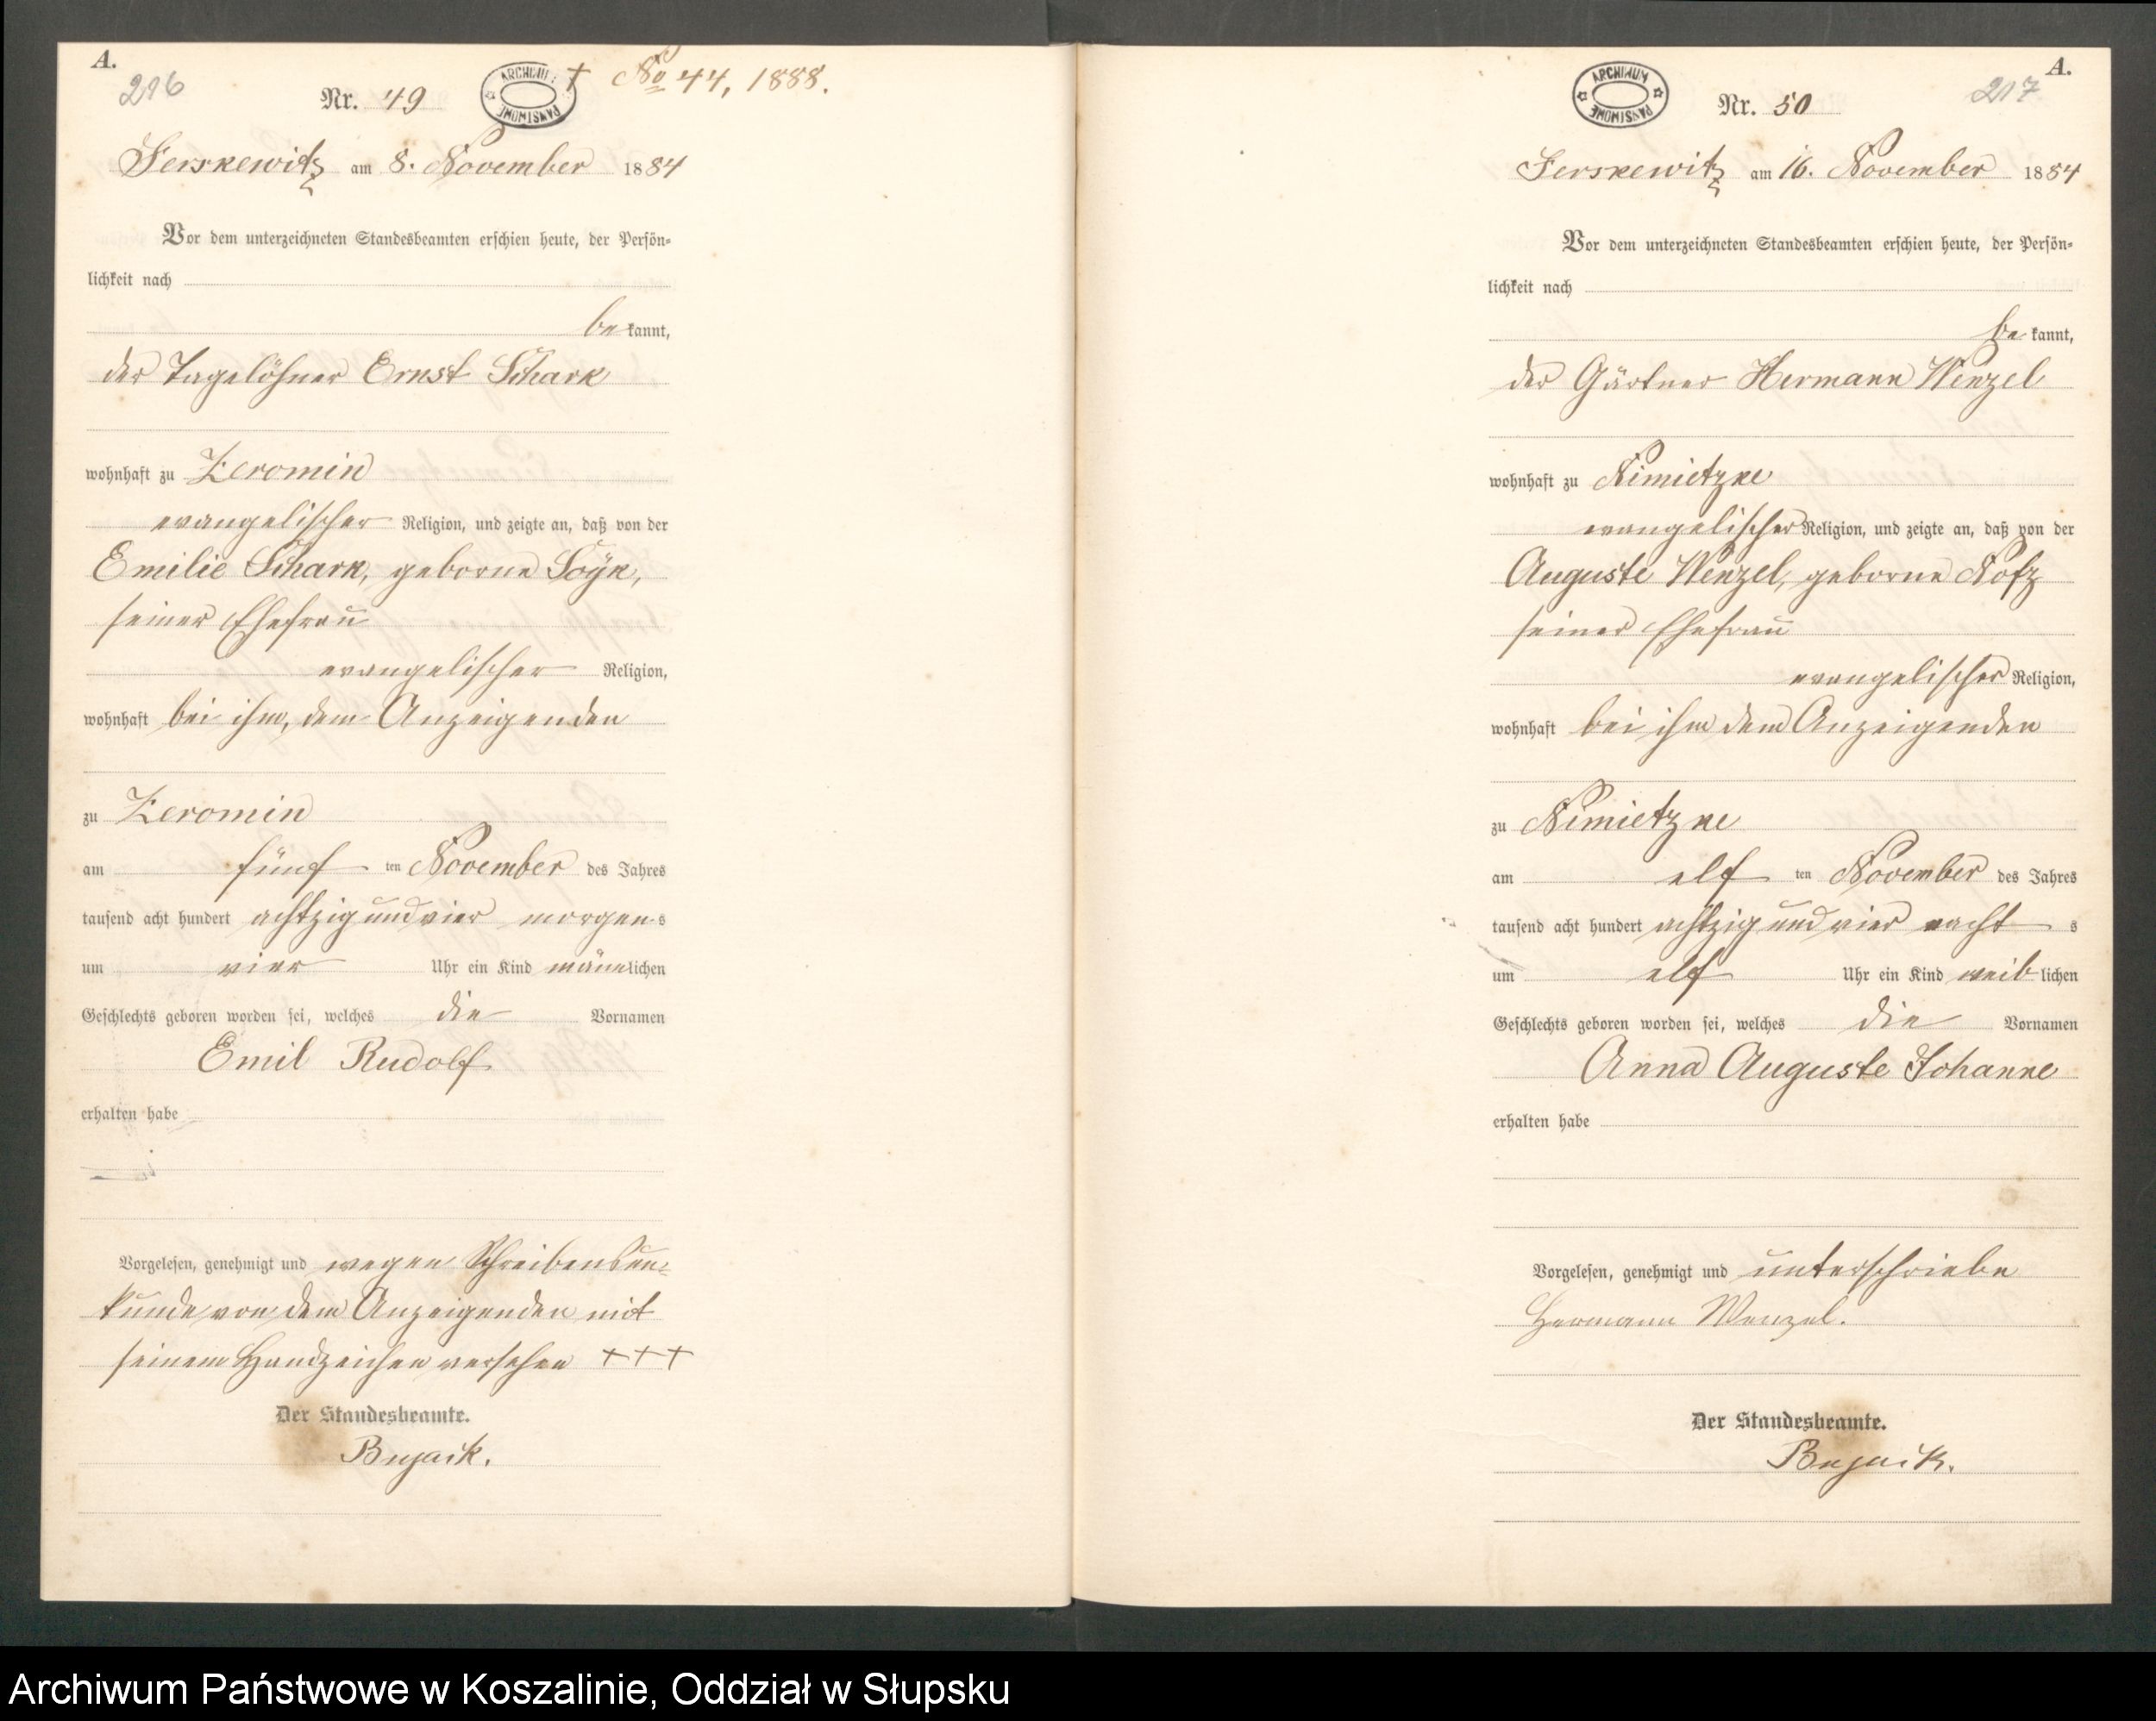 A.
216
Nr. 49
ARCHIWUM PAŃSTWOWE
† No 44, 1888.
Jerskewitz am 8. November 1884
Vor dem unterzeichneten Standesbeamten erschien heute, der Persön-
lichkeit nach
be kannt,
der Tagelöhner Ernst Schark
wohnhaft zu Zeromin
evangelischer Religion, und zeigte an, daß von der
Emilie Schark, geborne Soyk,
seiner Ehefrau
evangelischer Religion,
wohnhaft bei ihm, dem Anzeigenden
zu Zeromin
am fünf ten November des Jahres
tausend acht hundert achtzig und vier morgen s
um vier Uhr ein Kind männlichen
Geschlechts geboren worden sei, welches die Vornamen
Emil Rudolf
erhalten habe
Vorgelesen, genehmigt und wegen Schreibensun-
kunde von dem Anzeigenden mit
seinem Handzeichen versehen +++
Der Standesbeamte.
Bujack.
A.
217
ARCHIWUM PAŃSTWOWE
Nr. 50
Jerskewitz am 16. November 1884
Vor dem unterzeichneten Standesbeamten erschien heute, der Persön-
lichkeit nach
be kannt,
der Gärtner Hermann Wenzel
wohnhaft zu Nimietzke
evangelischer Religion, und zeigte an, daß von der
Auguste Wenzel, geborne Nofz
seiner Ehefrau
evangelischer Religion,
wohnhaft bei ihm dem Anzeigenden
zu Nimietzke
am elf ten November des Jahres
tausend acht hundert achtzig und vier nacht s
um elf Uhr ein Kind weib lichen
Geschlechts geboren worden sei, welches die Vornamen
Anna Auguste Johanne
erhalten habe
Vorgelesen, genehmigt und unterschriebe
Hermann Wenzel.
Der Standesbeamte.
Bujack.
Archiwum Państwowe w Koszalinie, Oddział w Słupsku